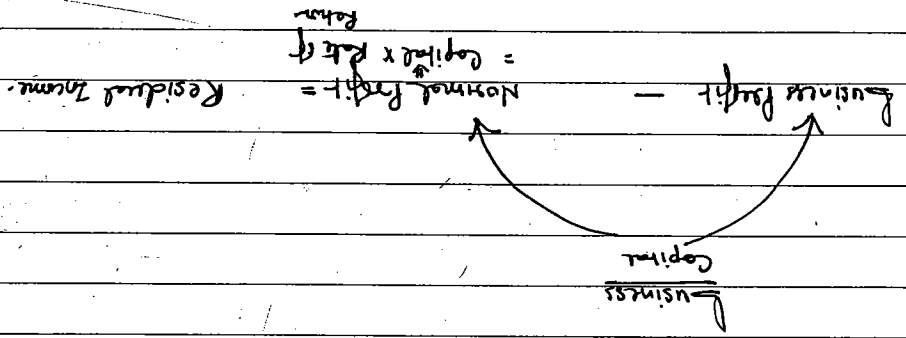 Business
Capital
Business Profit — Normal Profit = Residual Income.
= Capital x Rate of
Return